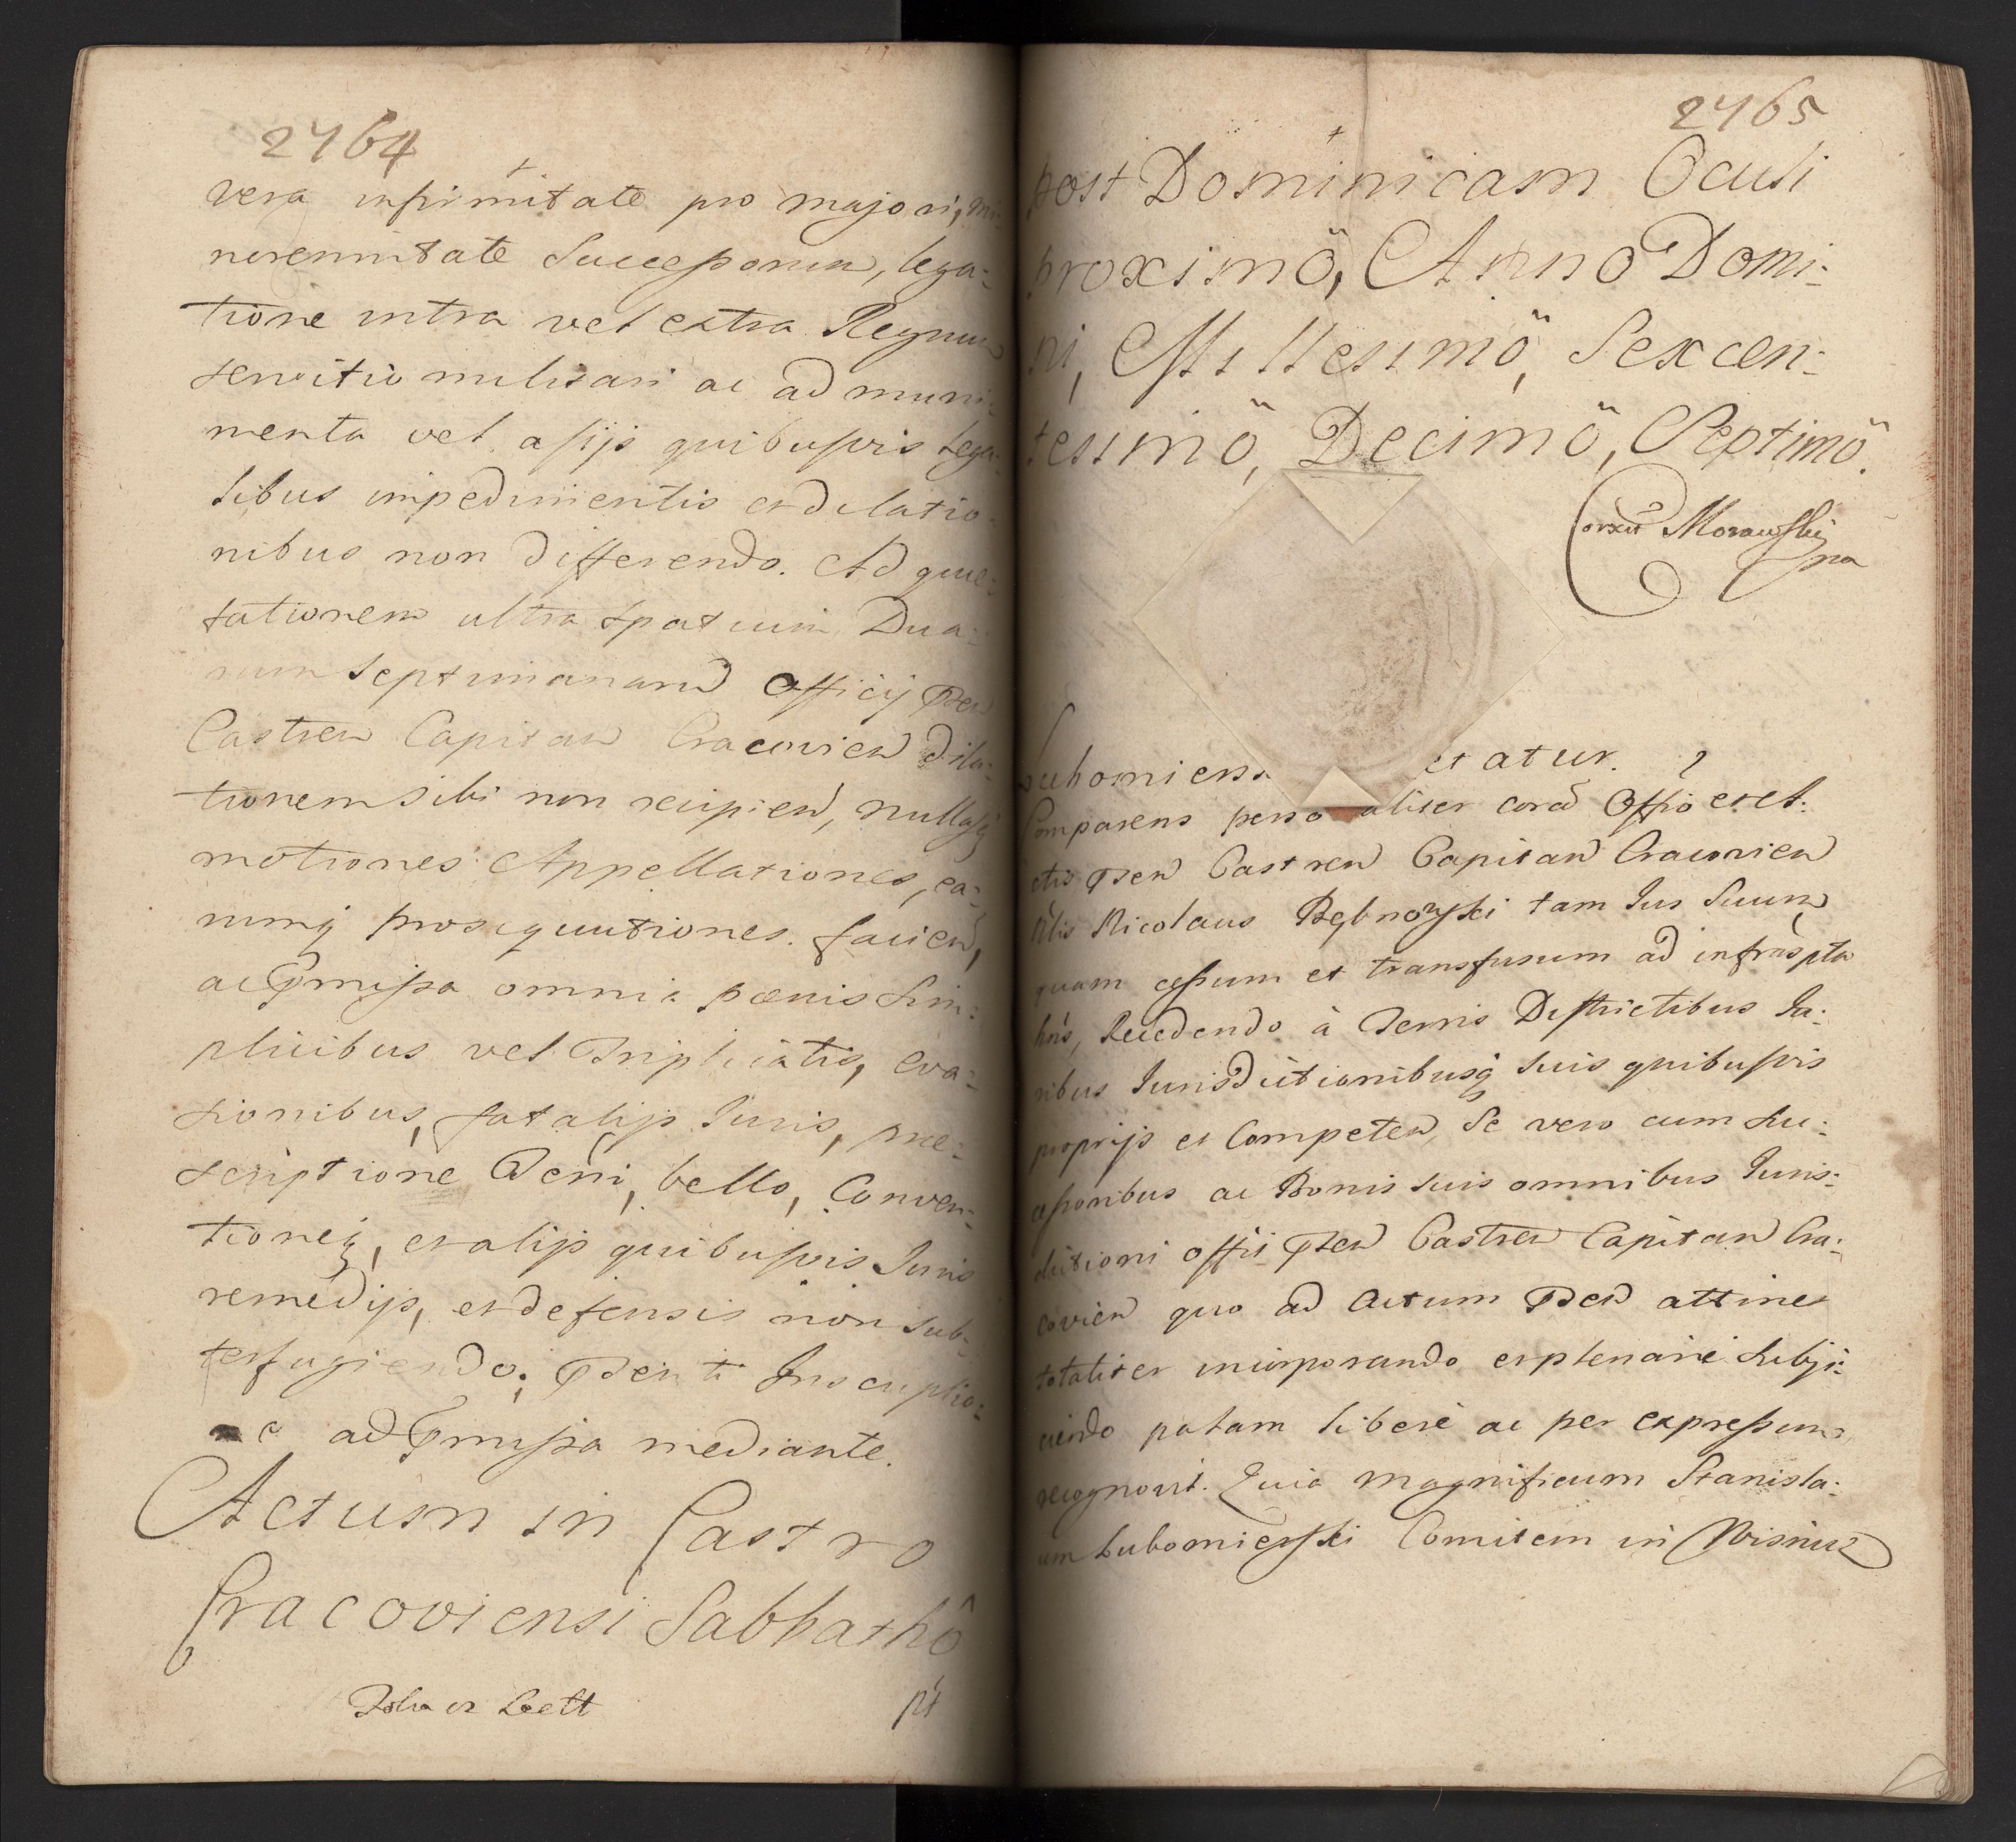 2764
vera infirmitate pro majori, mi-
norennitate Successorum, lega-
tione intra vel extra Regnum
servitio militari ac ad muni-
menta vel alijs quibusvis lega-
libus impedimentis et dilatio-
nibus non differendo. Ad quie-
tationem ultra spatium Dua-
rum Septimanarum Officij Pnen
Castren Capitan Cracovien dila-
tionem sibi non recipien, nullasq
motiones Appellationes, ea-
rumq prosequutiones. facien,
ac pmissa omnia pænis sim-
plicibus vel Triplicatis, eva-
sionibus, fatalijs Iuris, præ-
scriptione Terri, bello, Conven-
tioneq, et alijs quibusvis Iuris
remedijs, et defensis non sub-
terfugiendo; Pnenti Inscriptio-
ne ad pmissa mediante.
Actum in Castro
Cracoviensi Sabbathô
pt
2765
post Dominicam Oculi
proximô, Anno Domi-
ni, Millesimô, Sexcen-
tesimô, Decimô, Septimô.
Correxit Morawski
mp
Lubomiers etatur.
Comparens personaliter corã Offio et act-
ctis Pnen Castren Capitan Cracovien
Nlis Nicolaus Rębnowski tam Ius Suum
quam cessum et transfusum ad infrascpta
hns, Recedendo à Terris Districtibus Fa-
ribus Iurisdictionibusq suis quibusvis
proprijs et Competen, Se vero cum Suc-
cessoribus ac Bonis suis omnibus Iuris-
dictioni offii Pnen Castren Capitan Cra-
covien quo ad actum Pnen attinet
totaliter incorporando et plenarie Subji-
ciendo palam liberè ac per expressum
recognovit. Quia Magnificum Stanisla-
um Lubomierski Comitem in Wisnicz